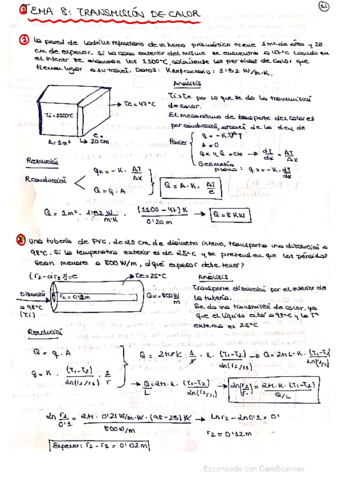 TEMA 8: TRANSMISIÓN DE CALOR
① La pared de ladrillo refractario de un horno pirometálico tiene 1 m² de área y 20
cm de espesor. Si la cara exterior del mismo se encuentra a 47°C cuando en
el interior se alcanzan los 1100°C, calcúlense las pérdidas de calor que
tienen lugar a su través. Datos: K refractario: 1'52 W/m·K.
Análisis
Ti = 1100°C
Te = 47°C
e
A = 1m²
20cm
Ti ≠ Te por lo que se da la transmisión
de calor.
El mecanismo de transporte del calor es
por conducción, através de la ley de
Fourier
q = -K·∇T
A = 0
Geometría
plana: q = -K· dT/dx
Resolución
R conducción
qx = -K· ΔT/Δx
Q = q·A
Q = A·K· ΔT/e
Q = 1m² · 1'52 W/m·K · (1100-47)K / 0'20 m → Q = 8 KW
② Una tubería de PVC, de 20 cm de diámetro interno, transporta una disolución a
98°C. Si la temperatura exterior es de 25°C y se pretende que las pérdidas
sean menores a 800 W/m, ¿qué espesor debe tener?
(r2 - r1) = e
Te = 25°C
Análisis
Disolución
a 98°C
(Ti)
Q = 800 W/m
Transporte disolución por el interior de
la tubería.
Se da una transmisión de calor, ya
que el líquido está a 98°C y la T°
externa es 25°C
Resolución
Q = q·A
q = K· (T1-T2)/ln(r2/r1) · 1/r
Q = 2πrL · 1/r · K · (T1-T2)/ln(r2/r1) → Q = 2πL·K· (T1-T2)/ln(r2/r1)
→ Q/L = 2π·K· (T1-T2)/ln(r2/r1) → ln(r2/r1) = 2π·K·(T1-T2)/Q/L
ln r2/0'1 = 2π · 0'21 W/m·K · (98-25)K / 800 W/m → Ln r2 - ln 0'1 = 0'
r2 = 0'12m
Espesor: r2 - r1 = 0'02m
Escaneado con CamScanner